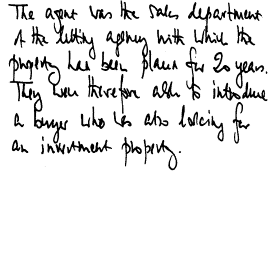 The agent was the sales department
of the letting agency with which the
property has been placed for 20 years.
They were therefore able to introduce
a buyer who was also looking for
an investment property.